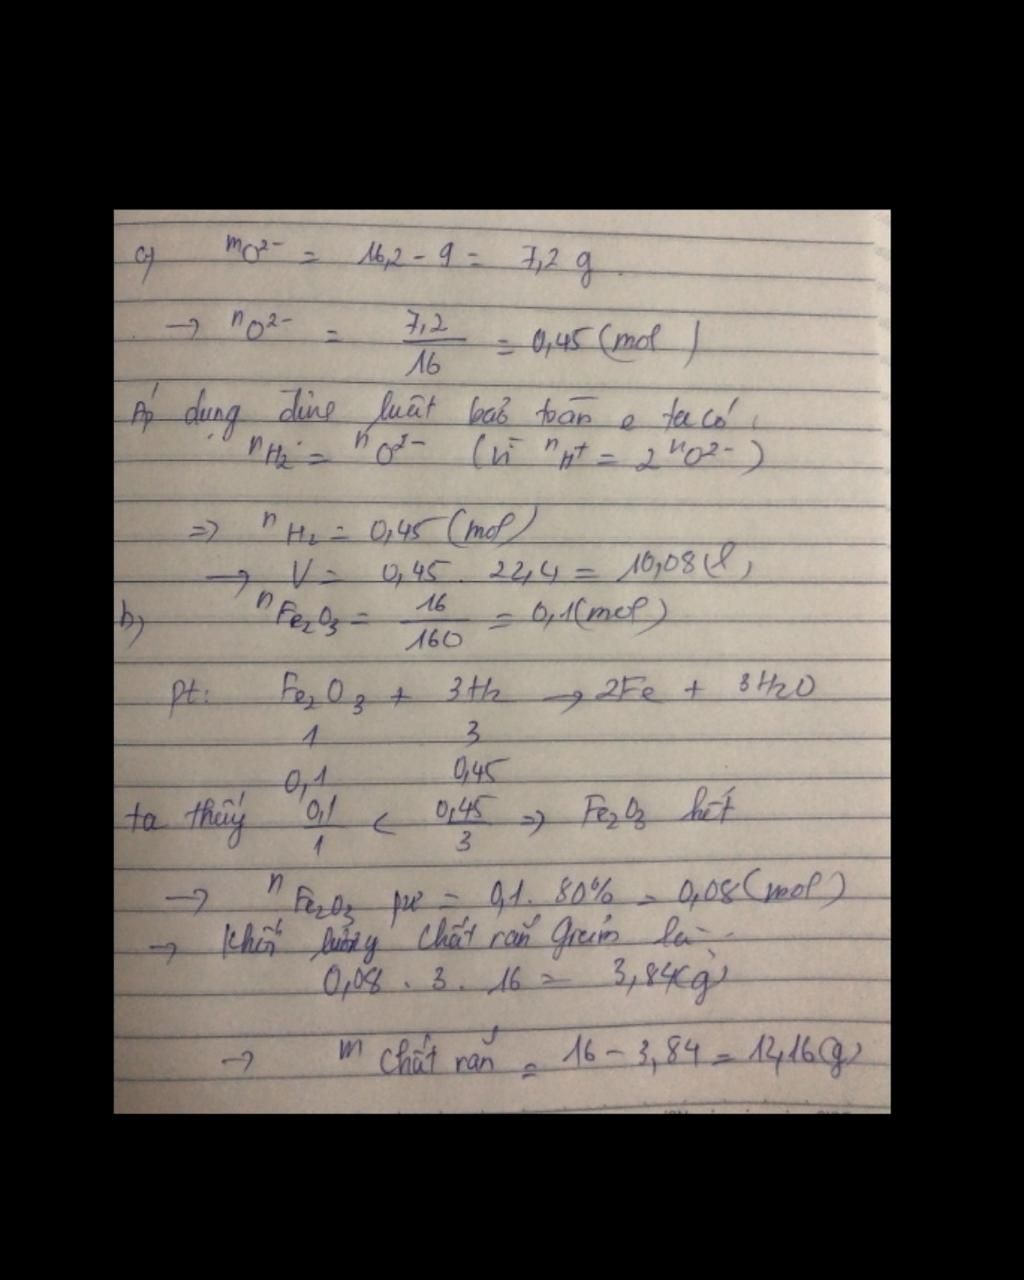 a) mO²⁻ = 16,2 - 9 = 7,2 g
→ nO²⁻ = 7,2/16 = 0,45 (mol)
Áp dụng định luật bảo toàn e ta có
nH₂ = nO²⁻ (vì nH⁺ = 2nO²⁻)
⇒ nH₂ = 0,45 (mol)
→ V = 0,45 . 22,4 = 10,08 (l)
b) nFe₂O₃ = 16/160 = 0,1 (mol)
pt: Fe₂O₃ + 3H₂ → 2Fe + 3H₂O
1 3
0,1 0,45
ta thấy 0,1/1 < 0,45/3 ⇒ Fe₂O₃ hết
→ nFe₂O₃ pư = 0,1 . 80% = 0,08 (mol)
→ Khối lượng chất rắn giảm là:
0,08 . 3 . 16 = 3,84 (g)
→ m chất rắn = 16 - 3,84 = 12,16 (g)